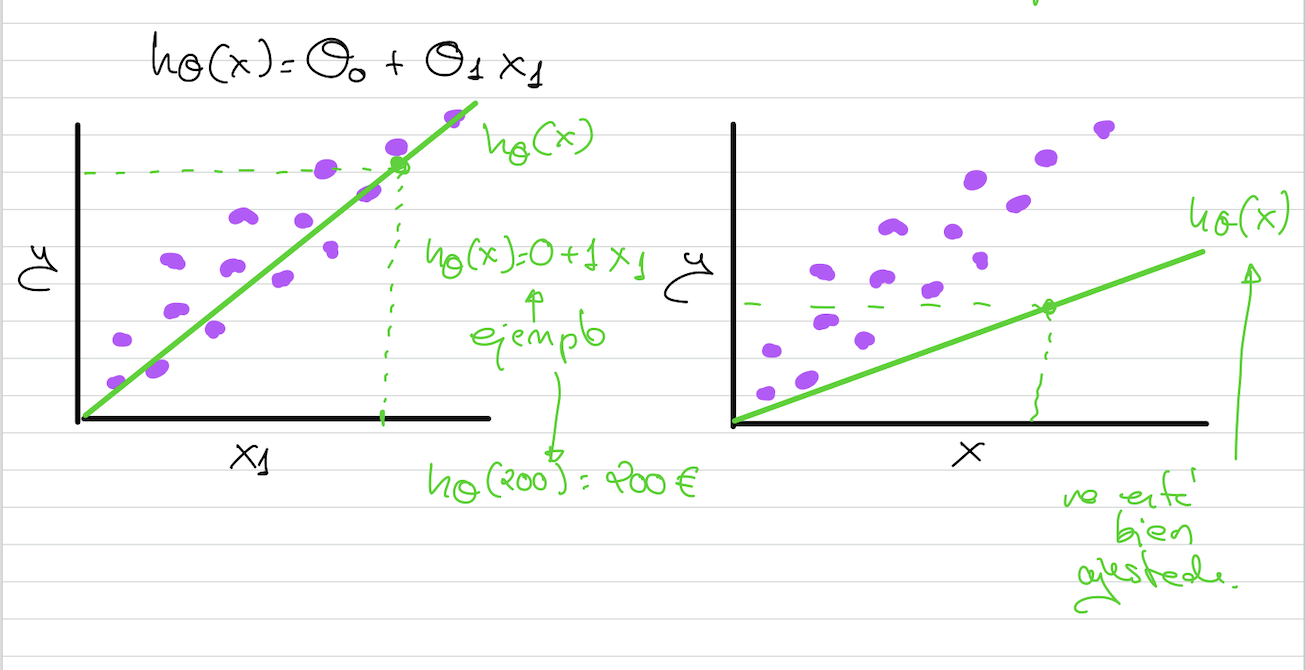 hθ(x)= θ₀ + θ₁ x₁
y
hθ(x)
hθ(x)=0+1x₁
ejemplo
x₁
hθ(200)=200€
y
hθ(x)
x
no está
bien
ajustada.